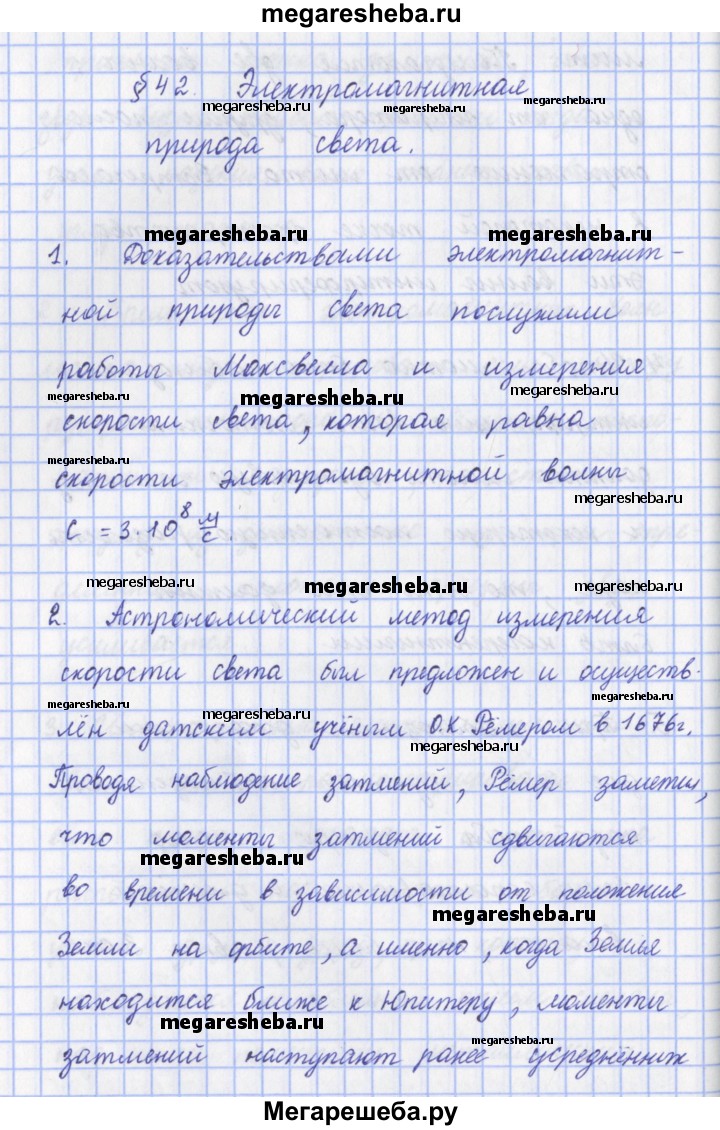 megaresheba.ru
§42. Электромагнитная
megaresheba.ru megaresheba.ru megaresheba.ru
природа света.
megaresheba.ru megaresheba.ru
1. Доказательствами электромагнит-
ной природы света послужили
работы Максвелла и измерения
megaresheba.ru megaresheba.ru megaresheba.ru
скорости света, которая равна
megaresheba.ru
скорости электромагнитной волны
megaresheba.ru
c = 3·10⁸ м/с.
megaresheba.ru megaresheba.ru megaresheba.ru
2. Астрономический метод измерения
скорости света был предложен и осуществ-
megaresheba.ru megaresheba.ru megaresheba.ru
лён датским учёным О.К. Рёмером в 1676г.
megaresheba.ru
Проводя наблюдение затмений, Рёмер заметил,
что моменты затмений сдвигаются
megaresheba.ru
во времени в зависимости от положения
megaresheba.ru
Земли на орбите, а именно, когда Земля
находится ближе к Юпитеру, моменты
megaresheba.ru megaresheba.ru
затмений наступают ранее усреднённых
Мегарешеба.ру